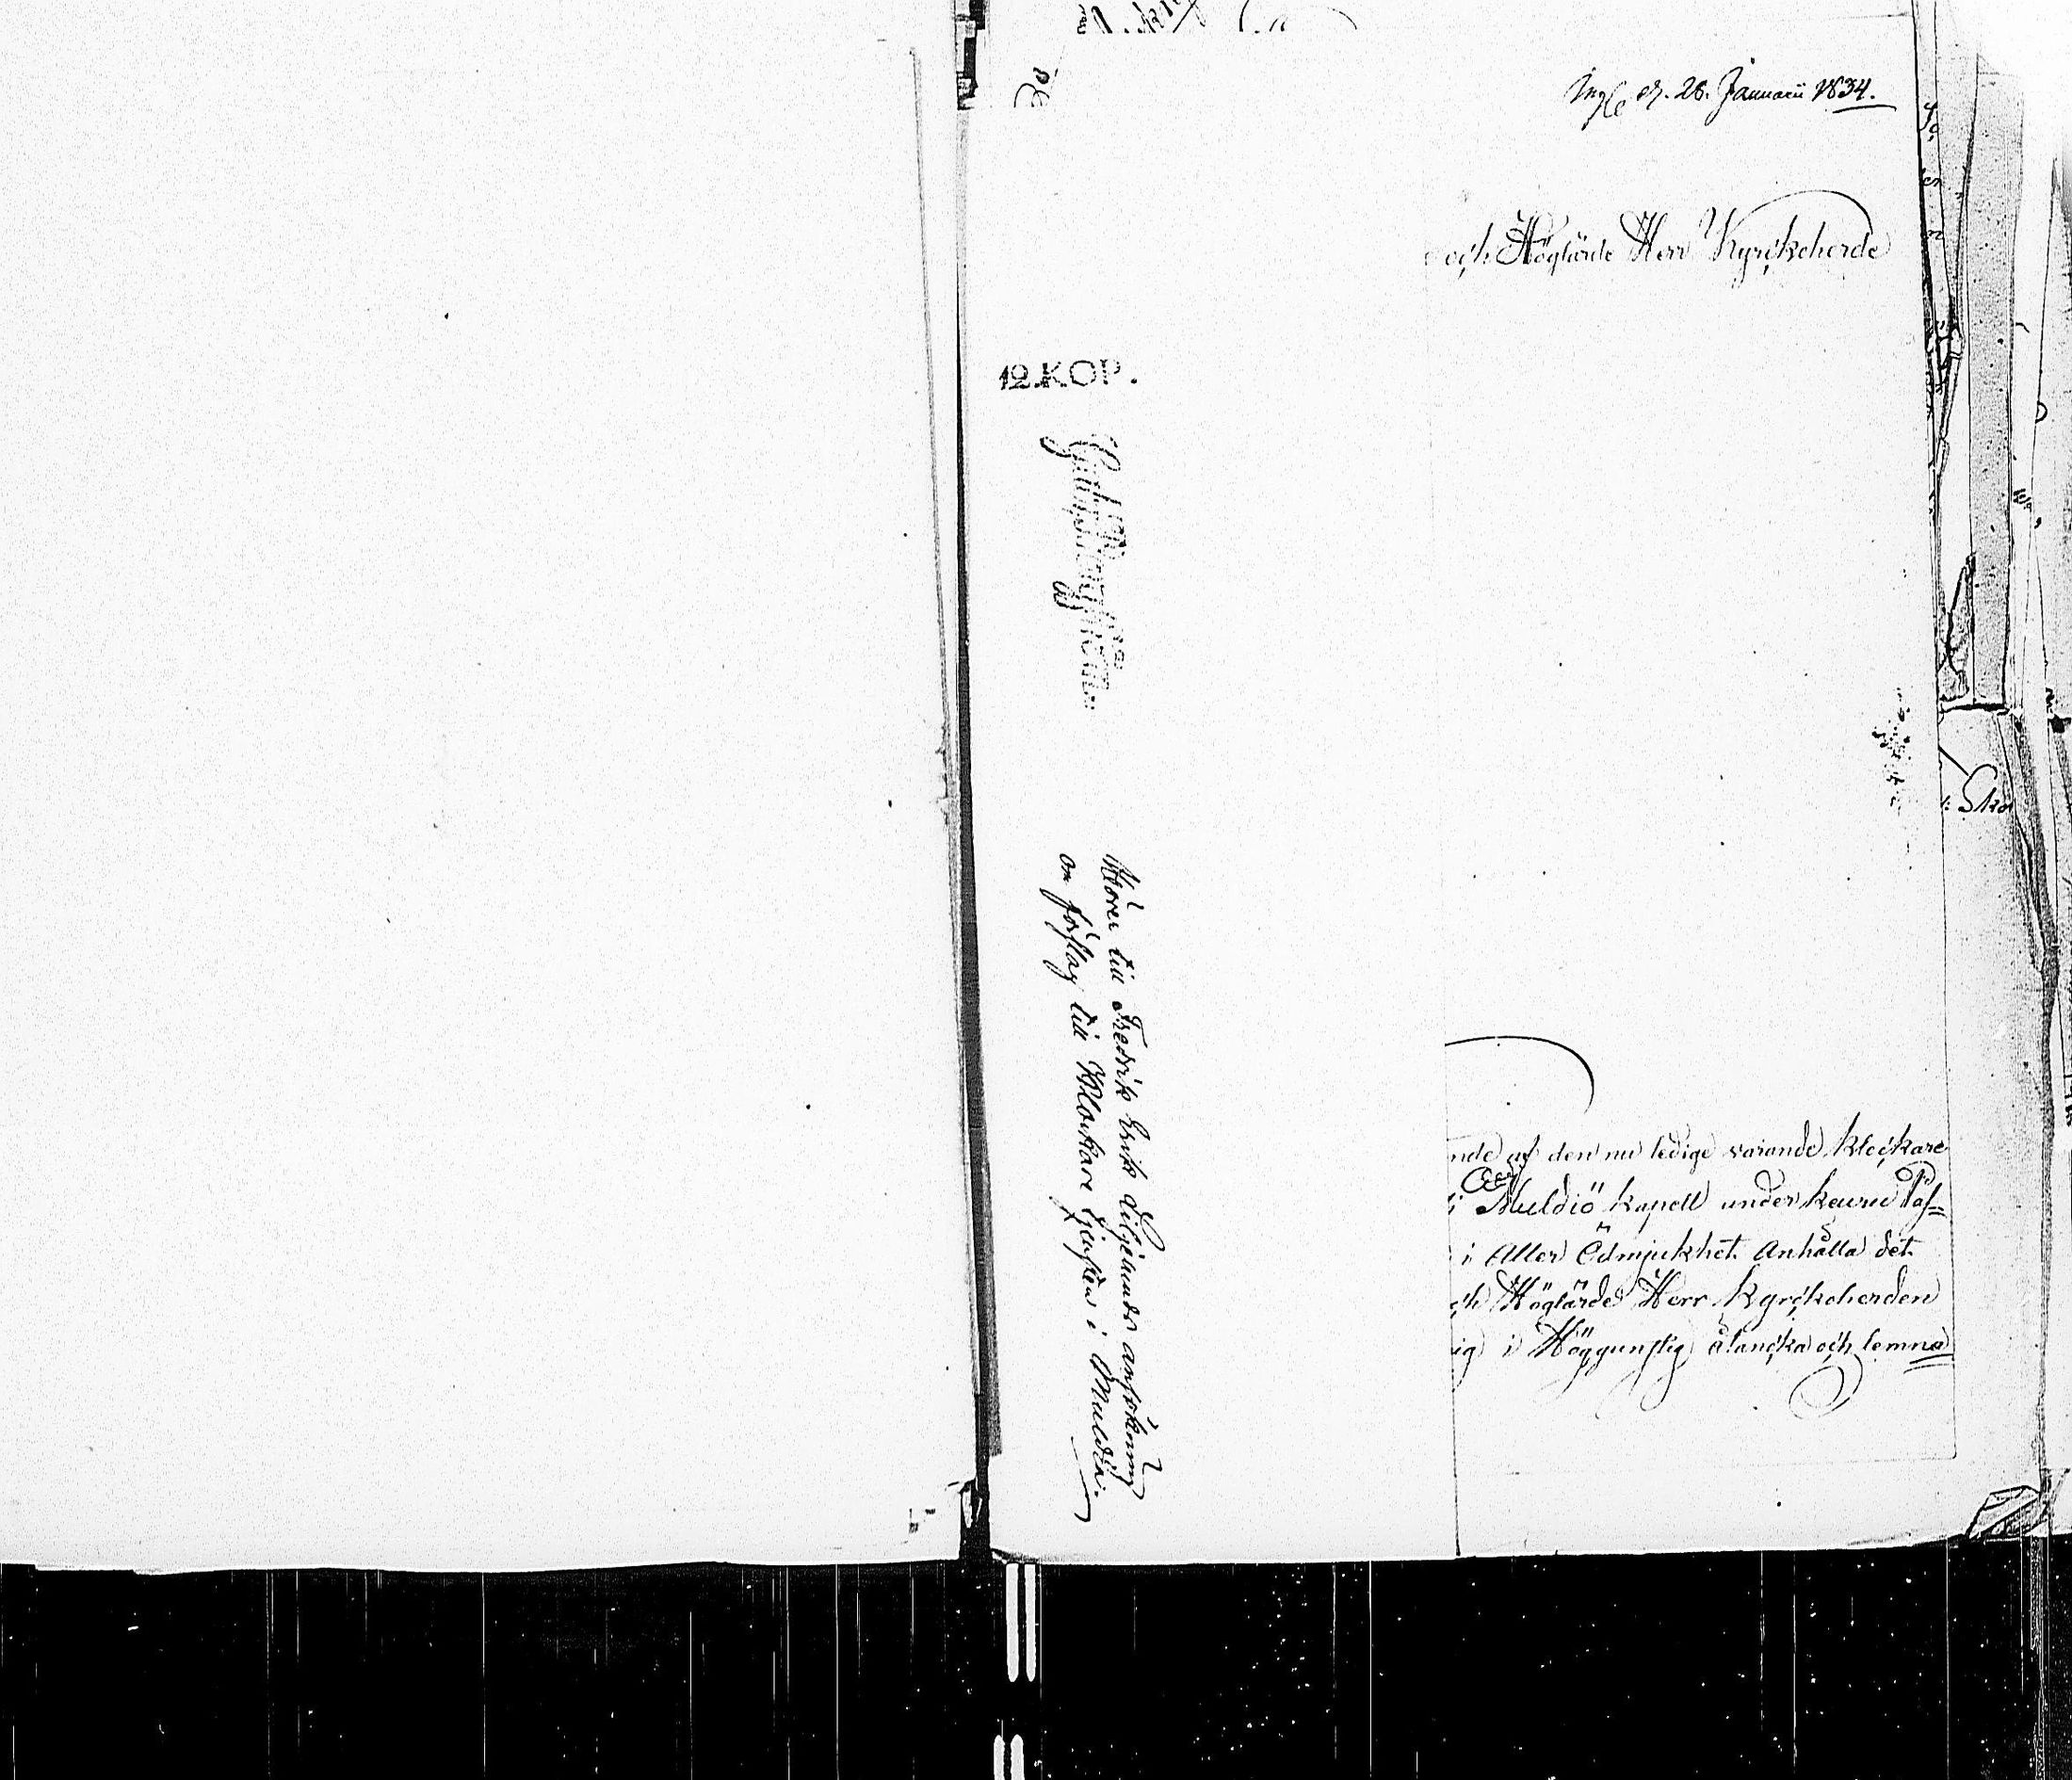 Ingl. d. 28. Januarii 1834.
och Höglärde Herr Kyrckoherde
12.KOP.
till Fredrik Erik Liljelunds ansökning
om förslag till Klockare tjensten i Muldia.
nde af den nu ledige varande kloçkare
i Muldiö kapell under keuru Pas=
i Aller Ödmjukhet Anhålla det
ch Höglärde Herr kyrckoherden
ig i Höggunstig åtancka och lemna
: Sko